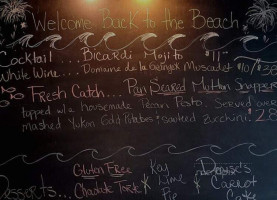 Welcome Back to the Beach
Cocktail ... Bicardi Mojito $11
White Wine ... Domaine de la Muscadet $10/
Fresh Catch ... Pan Seared Mutton Snapper
topped w/ housemade Pecan Pesto. Served over
mashed Yukon Gold Potatoes + sauteed zucchini! 28
Desserts ... Gluten Free Chocolate Torte
Key Lime Pie
Carrot Cake